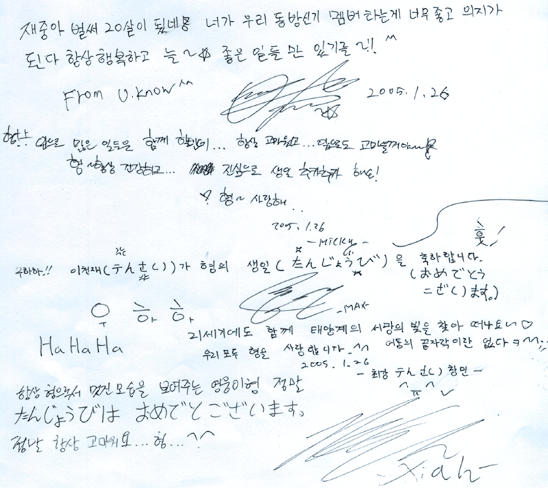 재중아 벌써 20살이 됐네용 너가 우리 동방신기 멤버 라는게 너무 좋고 의지가
된다 항상 행복하고 늘~ 좋은 일들만 있기를~!! ^^
From U.Know ^^
2005.1.26
형!! 앞으로 많은 일들을 함께 하겠지... 항상 고마웠고... 앞으로도 고마울꺼야
형~ 항상 건강하고... 진심으로 생일 축하축하 해요!
형~ 사랑해..
2005.1.26
-Micky-
우하하!! 이천재(てんさい)가 형의 생일(たんじょうび)을 축하합니다.
(おめでとう
ございます。)
우 하 하
HaHaHa
-MAX-
21세기에도 함께 태양계의 서광의 빛을 찾아 떠나요~♡
우리 모두 형을 사랑합니다.^^ 어둠의 끝자락이란 없다
2005.1.26
- 최강 てんさい 창민 -
항상 형으로서 멋진모습을 보여주는 영웅이형 정말
たんじょうびは おめでとございます。
정말 항상 고마워요...형...^^
-Xiah-